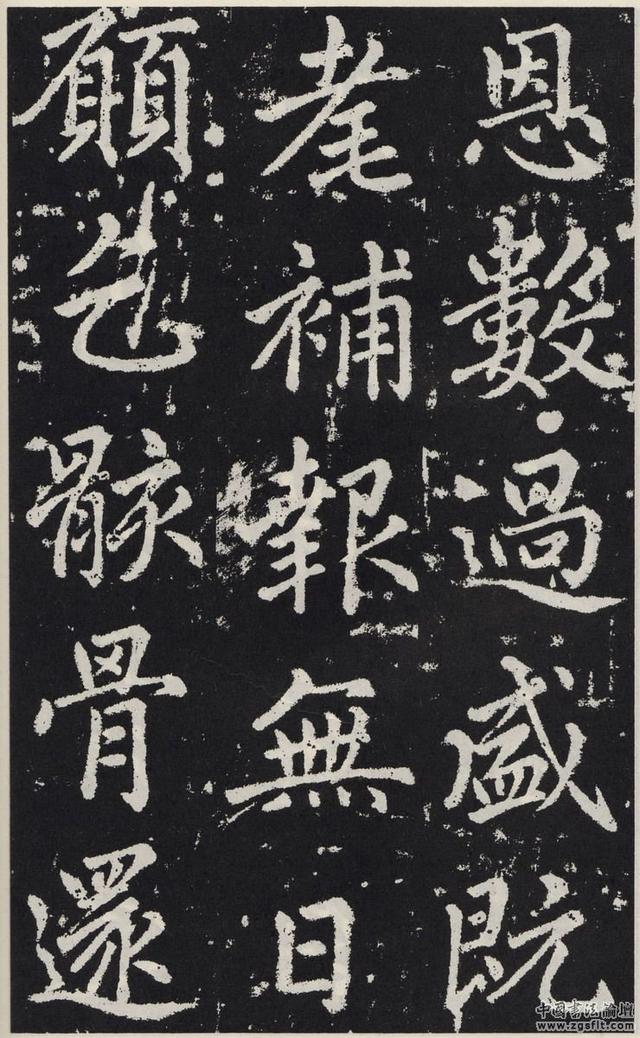 恩數過盛既
耄補報無日
願乞骸骨還
中國書法論壇
www.zgsflt.com